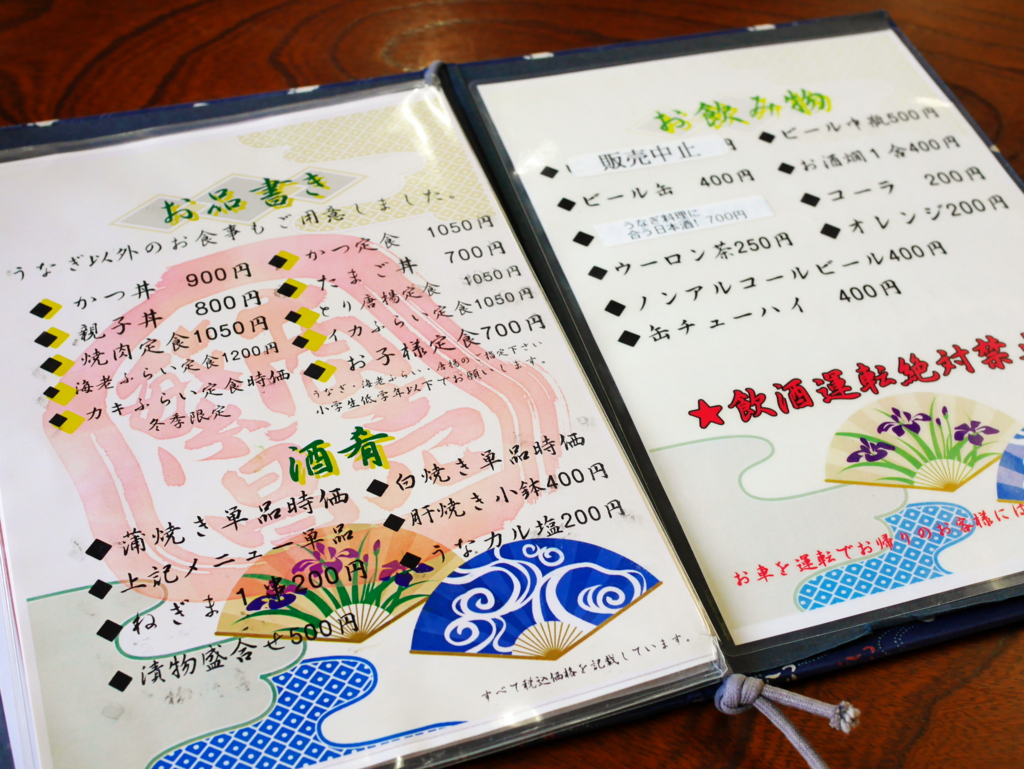 お品書き
うなぎ以外のお食事もご用意しました。
かつ丼 900円
親子丼 800円
焼肉定食1050円
海老ふらい定食1200円
カキふらい定食時価
冬季限定
かつ定食 1050円
たまご丼 700円
とり唐揚定食 1050円
イカふらい定食1050円
お子様定食700円
うなぎ・海老ふらい・唐揚のご指定下さい
小学生低学年以下でお願いします。
酒肴
蒲焼き単品時価
上記メニュー単品
ねぎま1串200円
漬物盛合せ500円
白焼き単品時価
肝焼き小鉢400円
うなカル塩200円
すべて税込価格を記載しています。
お飲み物
販売中止
ビール缶 400円
うなぎ料理に
合う日本酒! 700円
ウーロン茶250円
ノンアルコールビール400円
缶チューハイ 400円
ビール中瓶500円
お酒燗1合400円
コーラ 200円
オレンジ200円
★飲酒運転絶対禁止
お車を運転でお帰りのお客様には